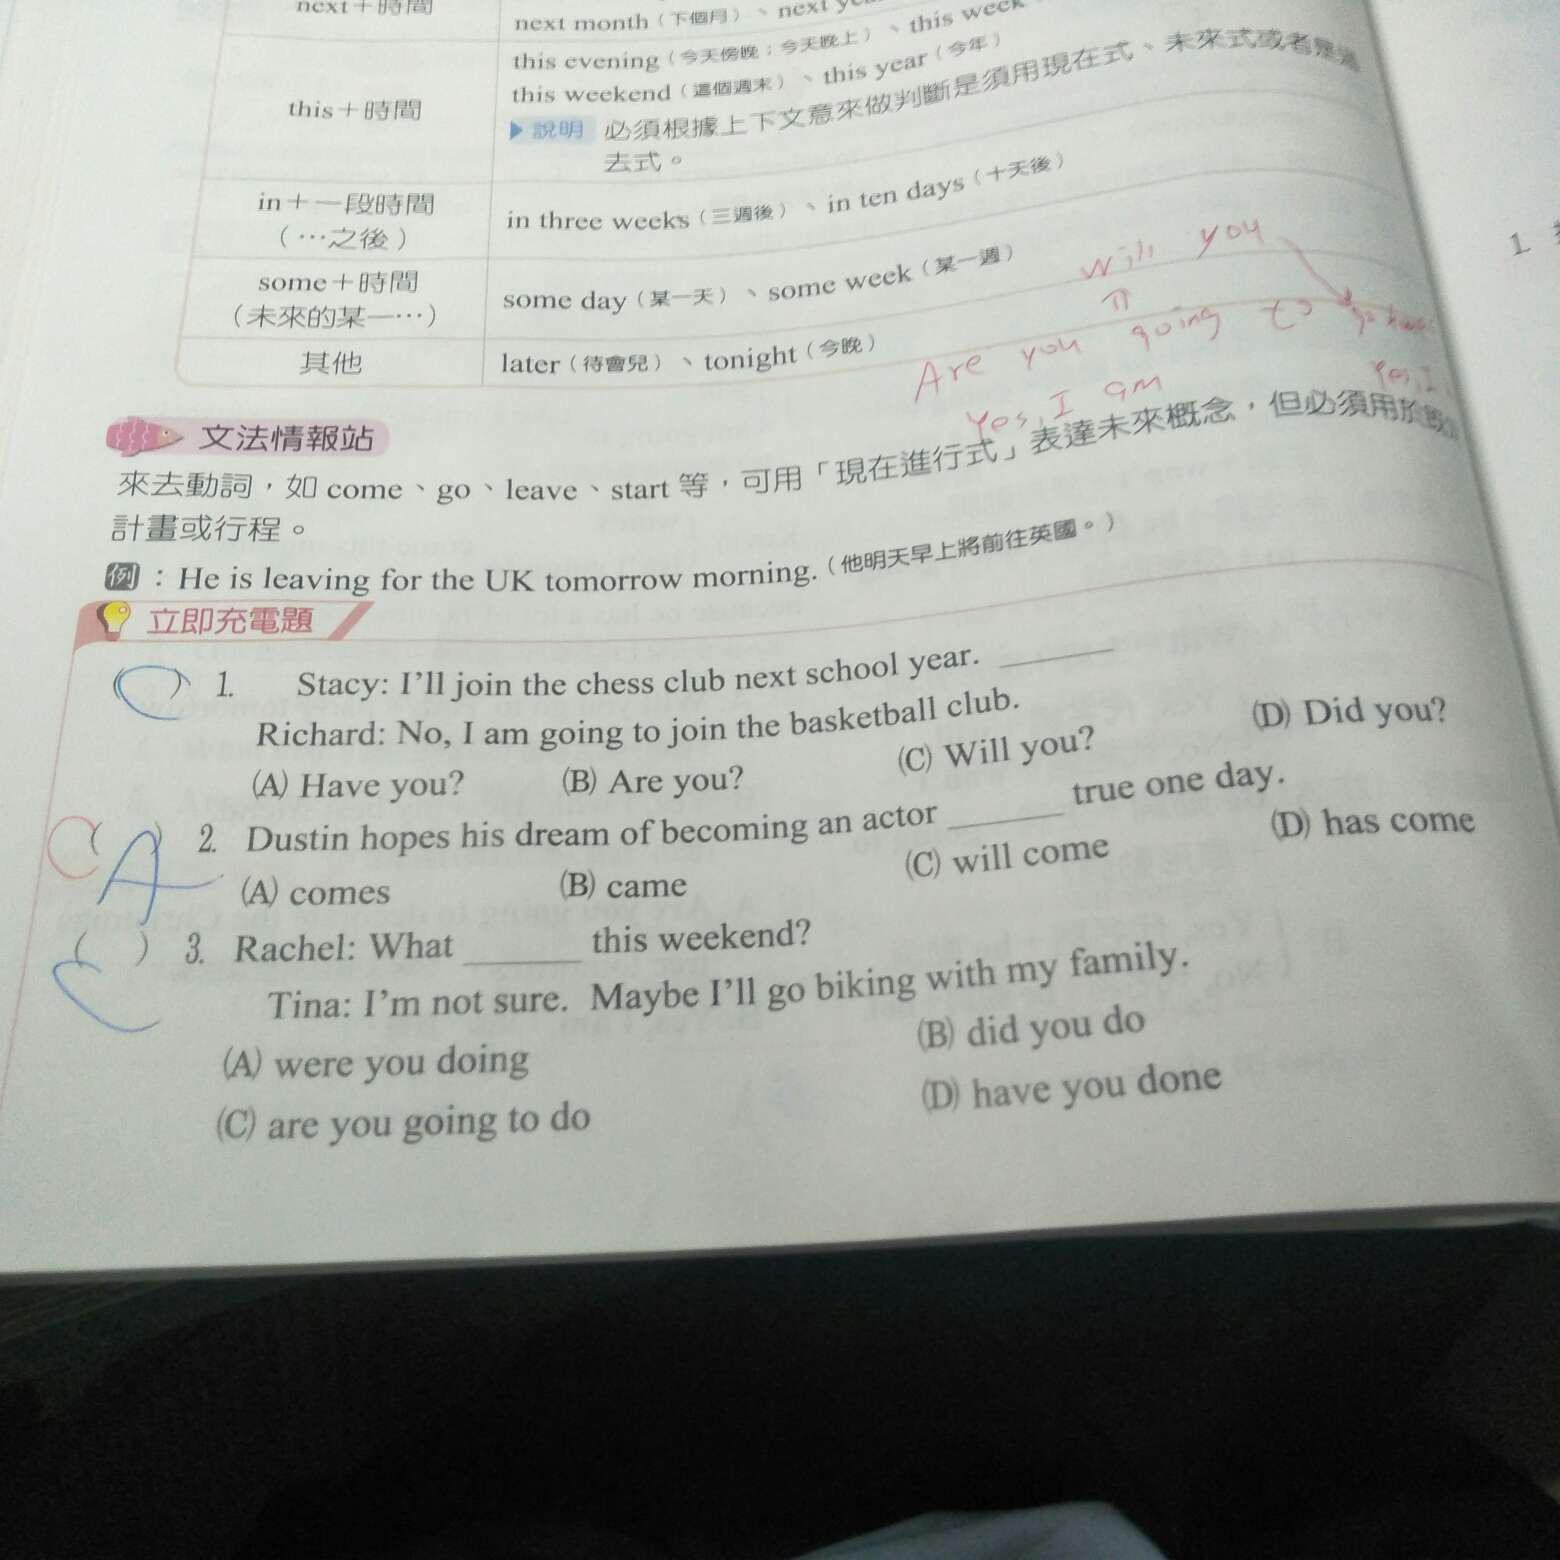 next＋時間
next month（下個月）、next
this＋時間
this evening（今天傍晚；今天晚上）、this week
this weekend（這個週末）、this year（今年）
▶說明 必須根據上下文意來做判斷是須用現在式、未來式或者是過
去式。
in＋一段時間
（…之後）
in three weeks（三週後）、in ten days（十天後）
some＋時間
（未來的某一…）
some day（某一天）、some week（某一週）
其他
later（待會兒）、tonight（今晚）
will you
Are you going to
Yes, I am
Yes, I
文法情報站
來去動詞，如 come、go、leave、start 等，可用「現在進行式」表達未來概念，但必須用於
計畫或行程。
例：He is leaving for the UK tomorrow morning.（他明天早上將前往英國。）
立即充電題
C
( ) 1. Stacy: I'll join the chess club next school year. ______
Richard: No, I am going to join the basketball club.
(A) Have you? (B) Are you? (C) Will you? (D) Did you?
C
A
( ) 2. Dustin hopes his dream of becoming an actor ______ true one day.
(A) comes (B) came (C) will come (D) has come
C
( ) 3. Rachel: What ______ this weekend?
Tina: I'm not sure. Maybe I'll go biking with my family.
(A) were you doing (B) did you do
(C) are you going to do (D) have you done
1